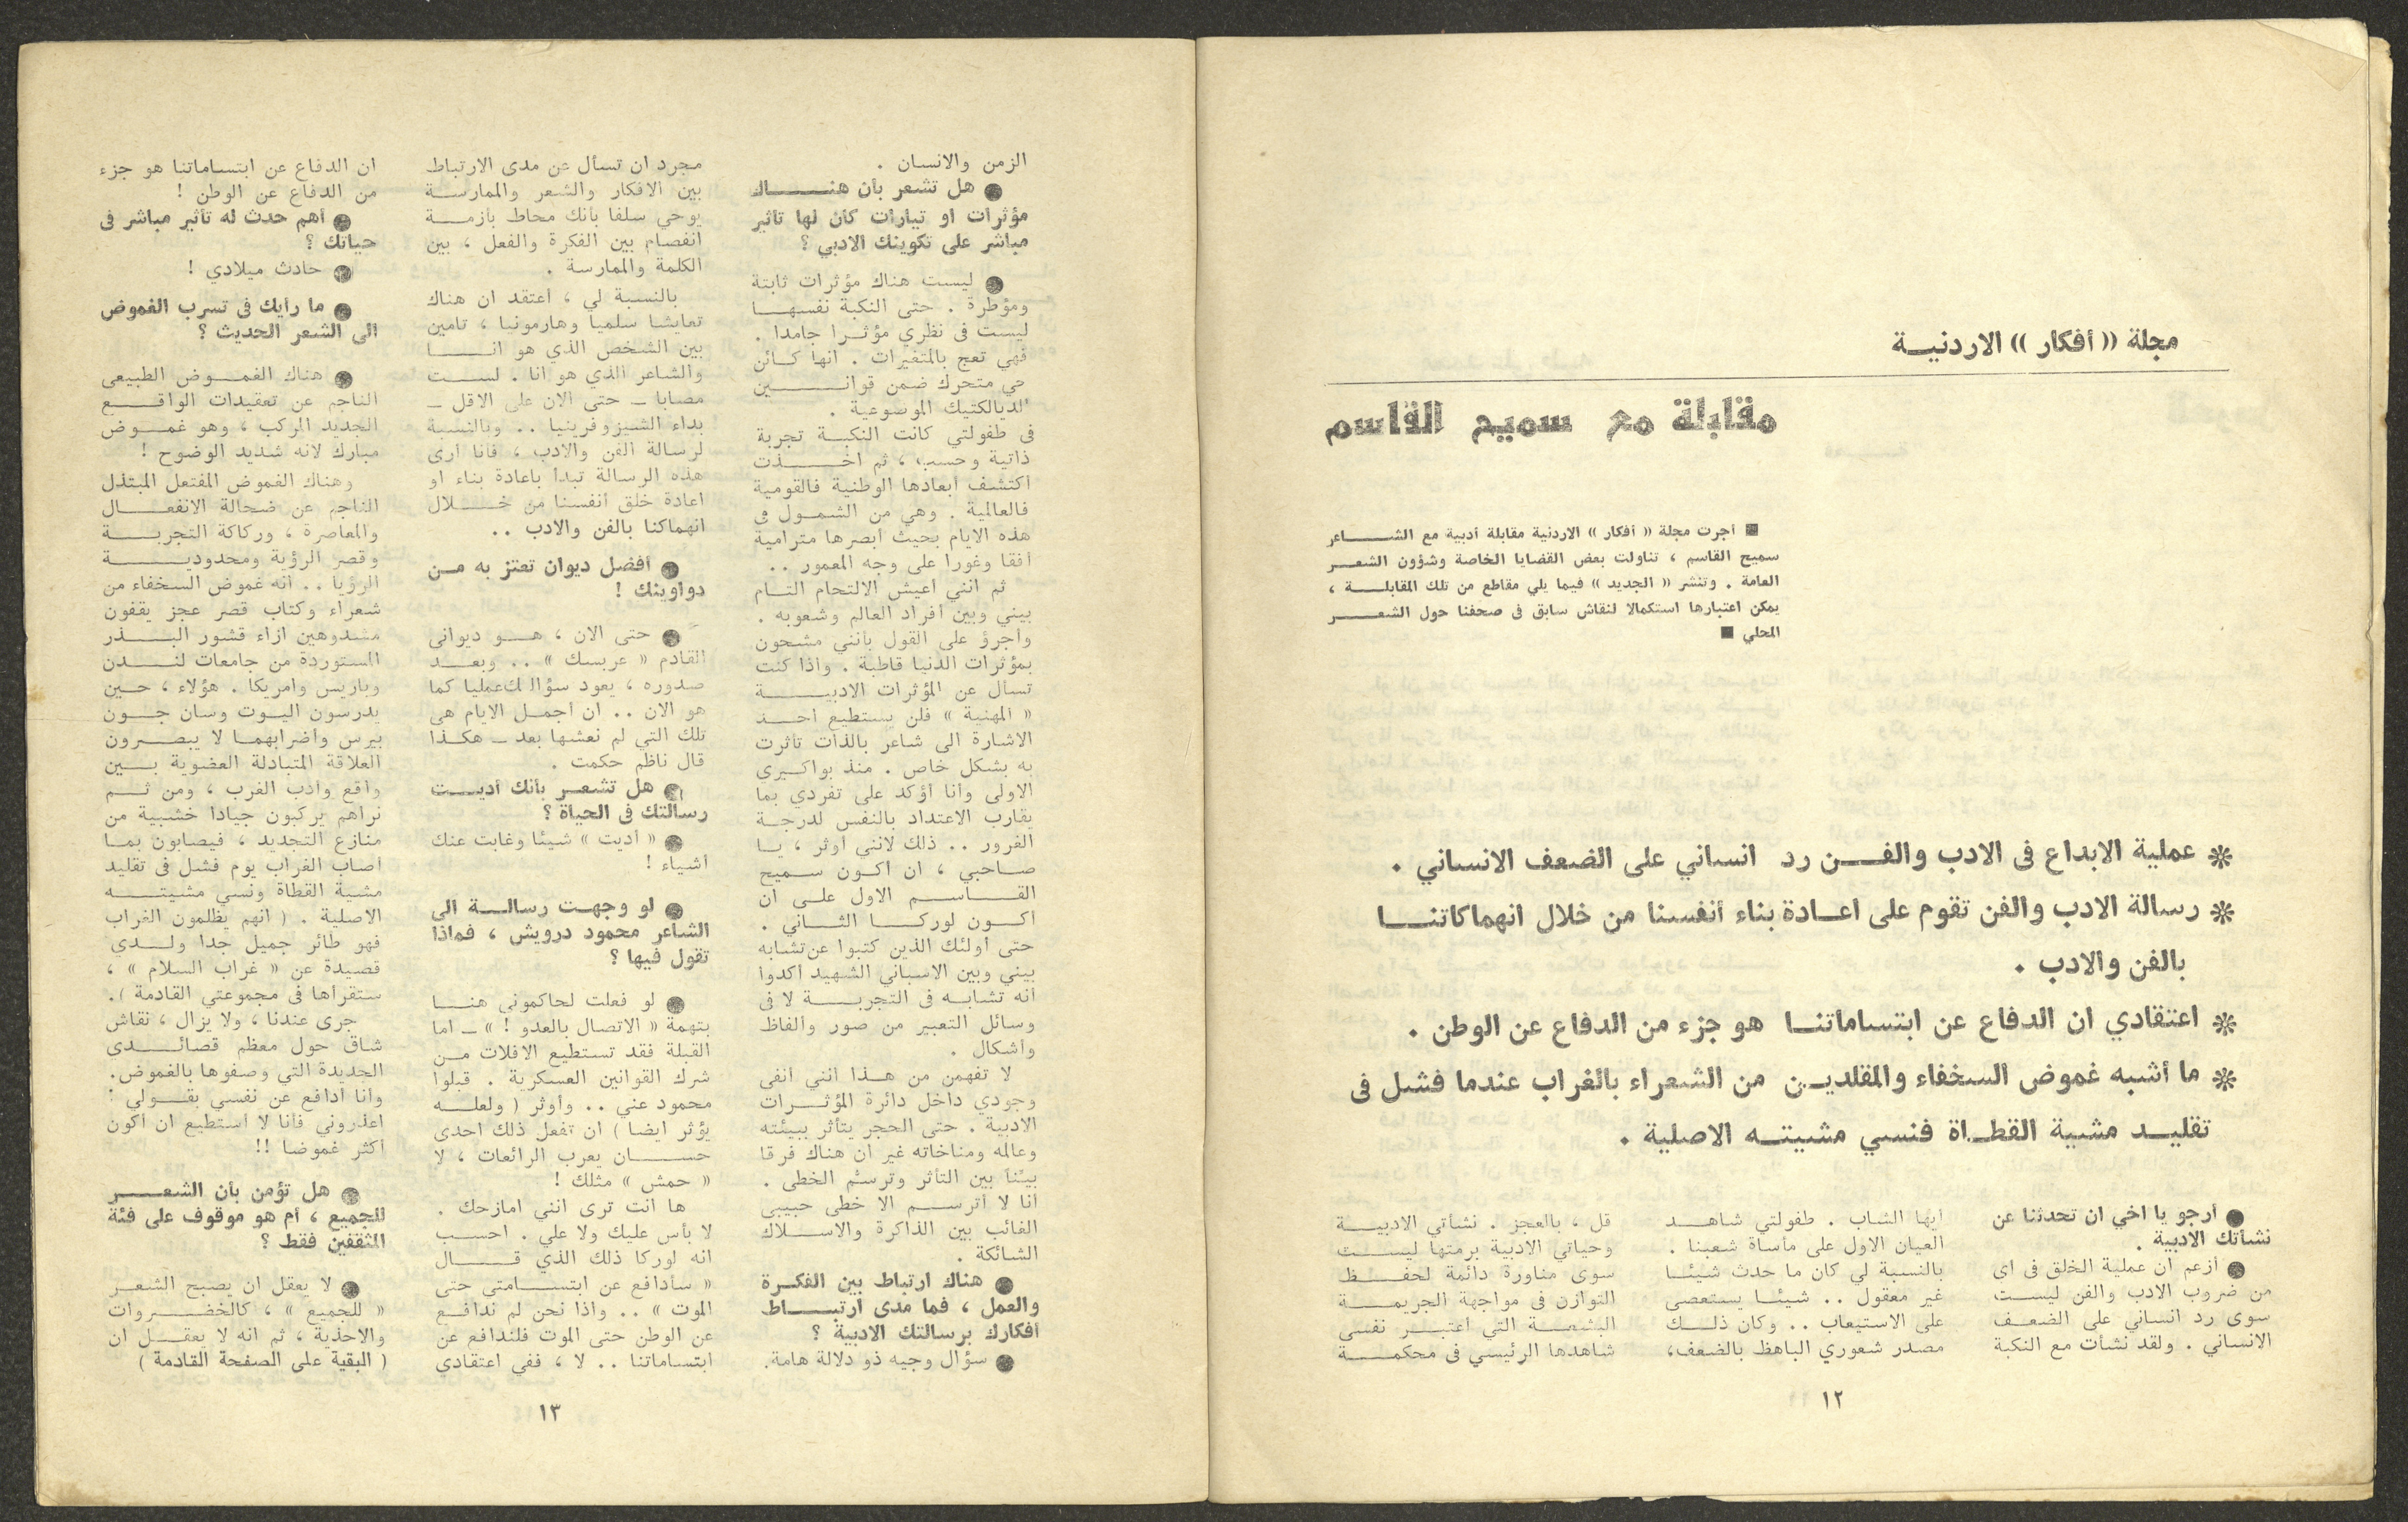 مجلة (( أفكار )) الاردنيــة
مقابلة مع سميح القاسم
■ أجرت مجلة (( أفكار )) الاردنية مقابلة أدبية مع الشـــــاعر
سميح القاسم ، تناولت بعض القضايا الخاصة وشؤون الشعـــر
العامة . وتنشر (( الجديد )) فيما يلي مقاطع من تلك المقابلــة ،
يمكن اعتبارها استكمالا لنقاش سابق فى صحفنا حول الشعـــر
المحلي ■
* عملية الابداع فى الادب والفـــن رد انساني على الضعف الانساني .
* رسالة الادب والفن تقوم على اعــادة بناء أنفسنا من خلال انهماكاتنــا
بالفن والادب .
* اعتقادي ان الدفاع عن ابتساماتنــا هو جزء من الدفاع عن الوطن .
* ما أشبه غموض السخفاء والمقلديـن من الشعراء بالغراب عندما فشل فى
تقليــد مشية القطــاة فنسي مشيتــه الاصلية .
● أرجو يا اخي ان تحدثنا عن
نشأتك الادبية .
● أزعم ان عملية الخلق فى اى
من ضروب الادب والفن ليســت
سوى رد انساني على الضعــف
الانساني . ولقد نشأت مع النكبة
أيها الشاب . طفولتي شاهــد
العيان الاول على مأساة شعبنا .
بالنسبة لي كان ما حدث شيئــا
غير معقول .. شيئــا يستعصى
على الاستيعاب .. وكان ذلــك
مصدر شعوري الباهظ بالضعف،
قل ، بالعجز . نشأتي الادبيــة
وحياتي الادبية برمتها ليســت
سوى مناورة دائمة لحفــظ
التوازن فى مواجهة الجريمــة
البشعــة التي اعتبــر نفسى
شاهدها الرئيسي فى محكمـــة
١٢
الزمن والانسان .
● هل تشعر بأن هنـــــاك
مؤثرات او تيارات كان لها تاثير
مباشر على تكوينك الادبي ؟
● ليست هناك مؤثرات ثابتة
ومؤطرة . حتى النكبة نفسهــا
ليست فى نظري مؤثــرا جامدا .
فهي تعج بالمتغيرات . انها كــائن
حي متحرك ضمن قوانـــــين
الديالكتيك الموضوعية .
فى طفولتي كانت النكبــة تجربة
ذاتية وحسب ، ثم اخـــــذت
اكتشف أبعادها الوطنية فالقومية
فالعالمية . وهي من الشمــول في
هذه الايام بحيث أبصرها مترامية
أفقا وغورا على وجه المعمور ..
ثم انني أعيش الالتحام التــام
بيني وبين أفراد العالم وشعوبه .
وأجرؤ على القول بأنني مشحون
بمؤثرات الدنيا قاطبة . واذا كنت
تسأل عن المؤثرات الادبيــــة
« المهنية » فلن يستطيع احــد
الاشارة الى شاعر بالذات تأثرت
به بشكل خاص . منذ بواكـيرى
الاولى وانا أؤكد على تفردي بما
يقارب الاعتداد بالنفس لدرجــة
الغرور .. ذلك لانني أوثر ، يــا
صــاحبي ، ان أكــون سـميح
القـــاســم الاول علــى ان
أكـــون لوركــــا الثــاني .
حتى أولئك الذين كتبوا عن تشابه
بيني وبين الاسباني الشهيد أكدوا
أنه تشابــه فى التجربــــة لا فى
وسائل التعبير من صور والفاظ
وأشكال .
لا تفهمن من هــذا انني أنفى
وجودي داخل دائرة المؤثــرات
الادبية . حتى الحجر يتأثر ببيئته
وعالمه ومناخاته غير ان هناك فرقا
بيّنا بين التأثر وترسّم الخطى .
أنا لا أترســم الا خطى حبيبى
الغائب بين الذاكرة والاســلاك
الشائكة .
● هناك ارتباط بين الفكــرة
والعمل ، فما مدى ارتبـــاط
أفكارك برسالتك الادبية ؟
● سؤال وجيه ذو دلالة هامة.
مجرد ان تسأل عن مدى الارتباط
بين الافكار والشعر والممارســة
يوحي سلفا بأنك محاط بأزمــة
انفصام بين الفكرة والفعل ، بين
الكلمة والممارسة .
بالنسبة لي ، أعتقد ان هناك
تعايشا سلميا وهارمونيا ، تامين
بين الشخص الذي هو انــــا
والشاعر الذي هو أنا . لســت
مصابا ــ حتى الان على الاقل ــ
بداء الشيزوفرينيا .. وبالنسبة
لرسالة الفن والادب ، فأنا أرى
هذه الرسالة تبدأ باعادة بناء او
اعادة خلق أنفسنا من خــــلال
انهماكنا بالفن والادب ..
● أفضل ديوان تعتز به مــن
دواوينك !
● حتى الان ، هــو ديوانى
القادم « عربسك » .. وبعــد
صدوره ، يعود سؤالك عمليا كما
هو الان .. ان أجمــل الايام هى
تلك التي لم نعشها بعد ــ هكــذا
قال ناظم حكمت .
● هل تشعــر بأنك أديــت
رسالتك فى الحياة ؟
● « أديت » شيئا وغابت عنك
أشياء !
● لو وجهــت رسالــة الى
الشاعر محمود درويش ، فماذا
تقول فيها ؟
● لو فعلت لحاكموني هنـــا
بتهمة « الاتصال بالعدو ! » ــ اما
القبلة فقد تستطيع الافلات مــن
شرك القوانين العسكرية . قبلوا
محمود عني .. وأوثر ( ولعلــه
يؤثر ايضا ) ان تفعل ذلك احدى
حســـان يعرب الرائعات ، لا
« حمش » مثلك !
ها أنت ترى انني امازحك .
لا بأس عليك ولا علي . احســب
انه لوركا ذلك الذي قـــــال
« سأدافع عن ابتســامتى حتى
الموت » .. واذا نحن لم ندافــع
عن الوطن حتى الموت فلندافع عن
ابتساماتنا .. لا ، ففي اعتقادى
ان الدفاع عن ابتساماتنا هو جزء
من الدفاع عن الوطن !
● أهم حدث له تأثير مباشر فى
حياتك ؟
● حادث ميلادي !
● ما رأيك فى تسرب الغموض
الى الشعر الحديث ؟
● هناك الغمــوض الطبيعى
الناجم عن تعقيدات الواقـــع
الجديد المركب ، وهو غمــوض
مبارك لانه شديد الوضوح !
وهناك الغموض المفتعل المبتذل
الناجم عن ضحالة الانفعــــال
والمعاصرة ، وركاكة التجربـــة
وقصر الرؤية ومحدوديـــــة
الرؤيا .. انه غموض السخفاء من
شعراء وكتاب قصر عجز يقفون
مشدوهين ازاء قشور البـــذر
المستوردة من جامعات لنـــدن
وباريس وامريكا . هؤلاء ، حــين
يدرسون اليوت وسان جــون
بيرس وأضرابهمــا لا يبصــرون
العلاقة المتبادلة العضوية بــين
واقع وأدب الغرب ، ومن ثــم
نراهم يركبون جيادا خشبية من
منازع التجديد ، فيصابون بمــا
أصاب الغراب يوم فشل فى تقليد
مشية القطاة ونسي مشيتـــه
الاصلية . ( انهم يظلمون الغراب
فهو طائر جميل جدا ولــدى
قصيدة عن « غراب السلام » ،
ستقرأها فى مجموعتي القادمة ).
جرى عندنا ، ولا يزال ، نقاش
شاق حول معظم قصائــــدى
الجديدة التي وصفوها بالغموض.
وأنا أدافع عن نفسي بقــولي :
اعذروني فأنا لا أستطيع ان أكون
أكثر غموضا !!
● هل تؤمن بأن الشعـــــر
للجميع ، أم هو موقوف على فئة
المثقفين فقط ؟
● لا يعقل ان يصبح الشعــر
« للجميع » ، كالخضــروات
والاحذية ، ثم انه لا يعقــل ان
( البقية على الصفحة القادمة )
١٣